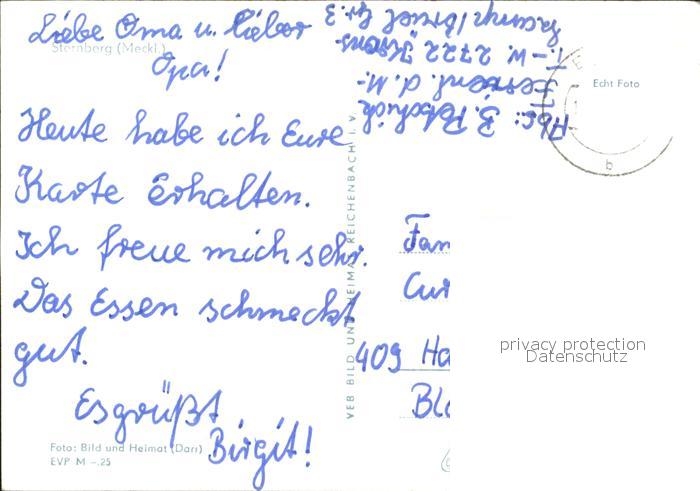 Liebe Oma u. lieber
Sternberg (Meckl.)
Opa!
Heute habe ich Eure
Karte Erhalten.
Ich freue mich sehr.
Das Essen schmeckt
gut.
Es grüßt
Birgit!
Foto: Bild und Heimat (Darr)
EVP M -.25
VEB BILD UND HEIMAT REICHENBACH I. V.
Abs.: B.
d. M.-
T.-W. 2722
Gr. 3
Echt Foto
b
Fam
Cur
409 Ha
Blo
privacy protection
Datenschutz